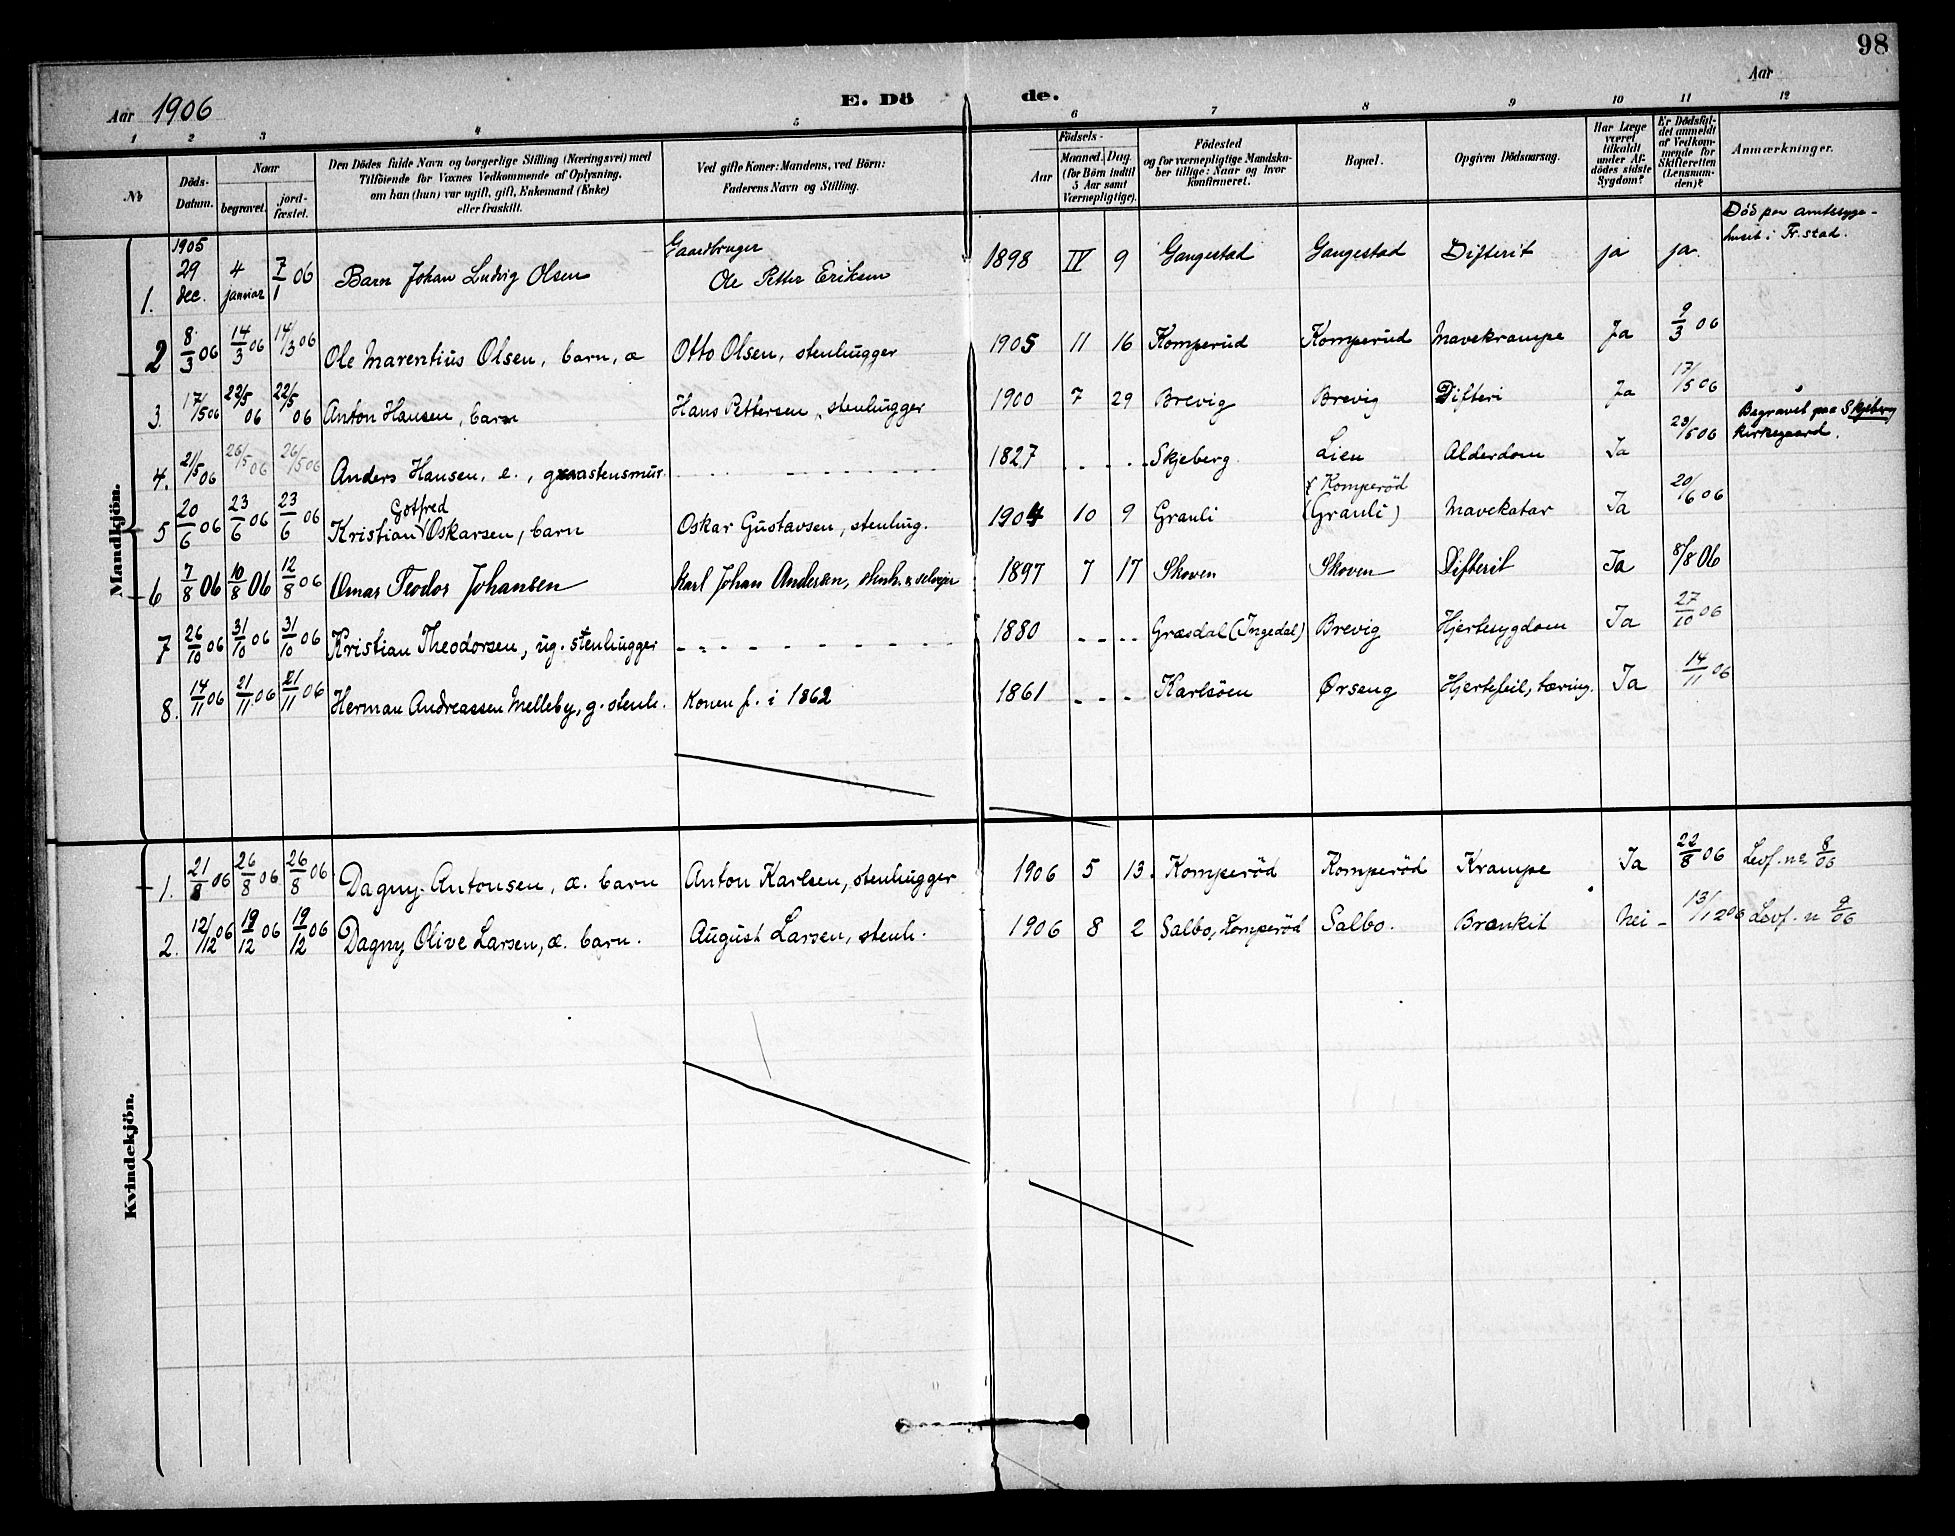 98
Aar 1906
E. Dö de.
Aar
1 2 3 4 5 6 7 8 9 10 11 12
No
Döds-Datum.
Naar
begravet.
jord-fæstet.
Den Dödes fulde Navn og borgerlige Stilling (Næringsvei) med
Tilföiende for Voxnes Vedkommende af Oplysning,
om han (hun) var ugift, gift, Enkemand (Enke)
eller fraskilt.
Ved gifte Koner: Mandens, ved Börn:
Faderens Navn og Stilling.
Födsels-
Aar
Maaned. Dag.
(for Börn indtil
5 Aar samt
Værnepligtige).
Födested
og for værnepligtige Mandska-
ber tillige: Naar og hvor
konfirmeret.
Bopæl.
Opgiven Dödsaarsag.
Har Læge
været
tilkaldt
under Af-
dödes sidste
Sygdom?
Er Dödsfal-
det anmeldt
af Vedkom-
mende for
Skifteretten
(Lensman-
den)?
Anmærkninger.
Mandkjön.
1. 1905 29 dec. 4 januar 7/1 06 Barn Johan Ludvig Olsen Gaardbruger Ole Petter Eriksen 1898 IV 9 Gangestad Gangestad Difterit ja ja. Död paa amtssyge-huset i Fr.stad.
2 8/3 06 14/3 06 14/3 06 Ole Marentius Olsen, barn, æ Otto Olsen, stenhugger 1905 11 16 Komperud Komperud Mavekrampe Ja 9/3 06
3. 17/5 06 22/5 06 22/5 06 Anton Hansen, barn Hans Pettersen, stenhugger 1900 7 29 Brevig Brevig Difteri Ja 17/5 06
4. 21/5 06 26/5 06 26/5 06 Anders Hansen, e., graastensmur. 1827 Skjeberg Lien Alderdom Ja 23/5 06 Begravet paa Skjeberg Kirkegaard.
5 20/6 06 23/6 06 23/6 06 Kristian Gotfred Oskarsen, barn Oskar Gustavsen, stenhug. 1904 10 9 Granli Komperöd (Granli) Mavekatar Ja 20/6 06
6 7/8 06 10/8 06 12/8 06 Omar Teodor Johansen Karl Johan Andersen, stenh. & selveier 1897 7 17 Skoven Skoven Difterit Ja 8/8 06
7 26/10 06 31/10 06 31/10 06 Kristian Theodorsen, ug. stenhugger 1880 Græsdal (Ingedal) Brevig Hjertesygdom Ja 27/10 06
8. 14/11 06 21/11 06 21/11 06 Herman Andreassen Melleby, g. stenh. Konen f. i 1862 1861 Karlsöen Ørseng Hjertefeil, tæring. Ja 14/11 06
Kvindekjön.
1. 21/8 06 26/8 06 26/8 06 Dagny Antonsen, æ. barn Anton Karlsen, stenhugger 1906 5 13. Komperöd Komperöd Krampe Ja 22/8 06 Levf. no 8/06
2. 12/12 06 19/12 06 19/12 06 Dagny Olive Larsen, æ. barn. August Larsen, stenh. 1906 8 2 Salbo, Komperöd Salbo. Bronkit Nei - 13/12 06 Levf. n 9/06